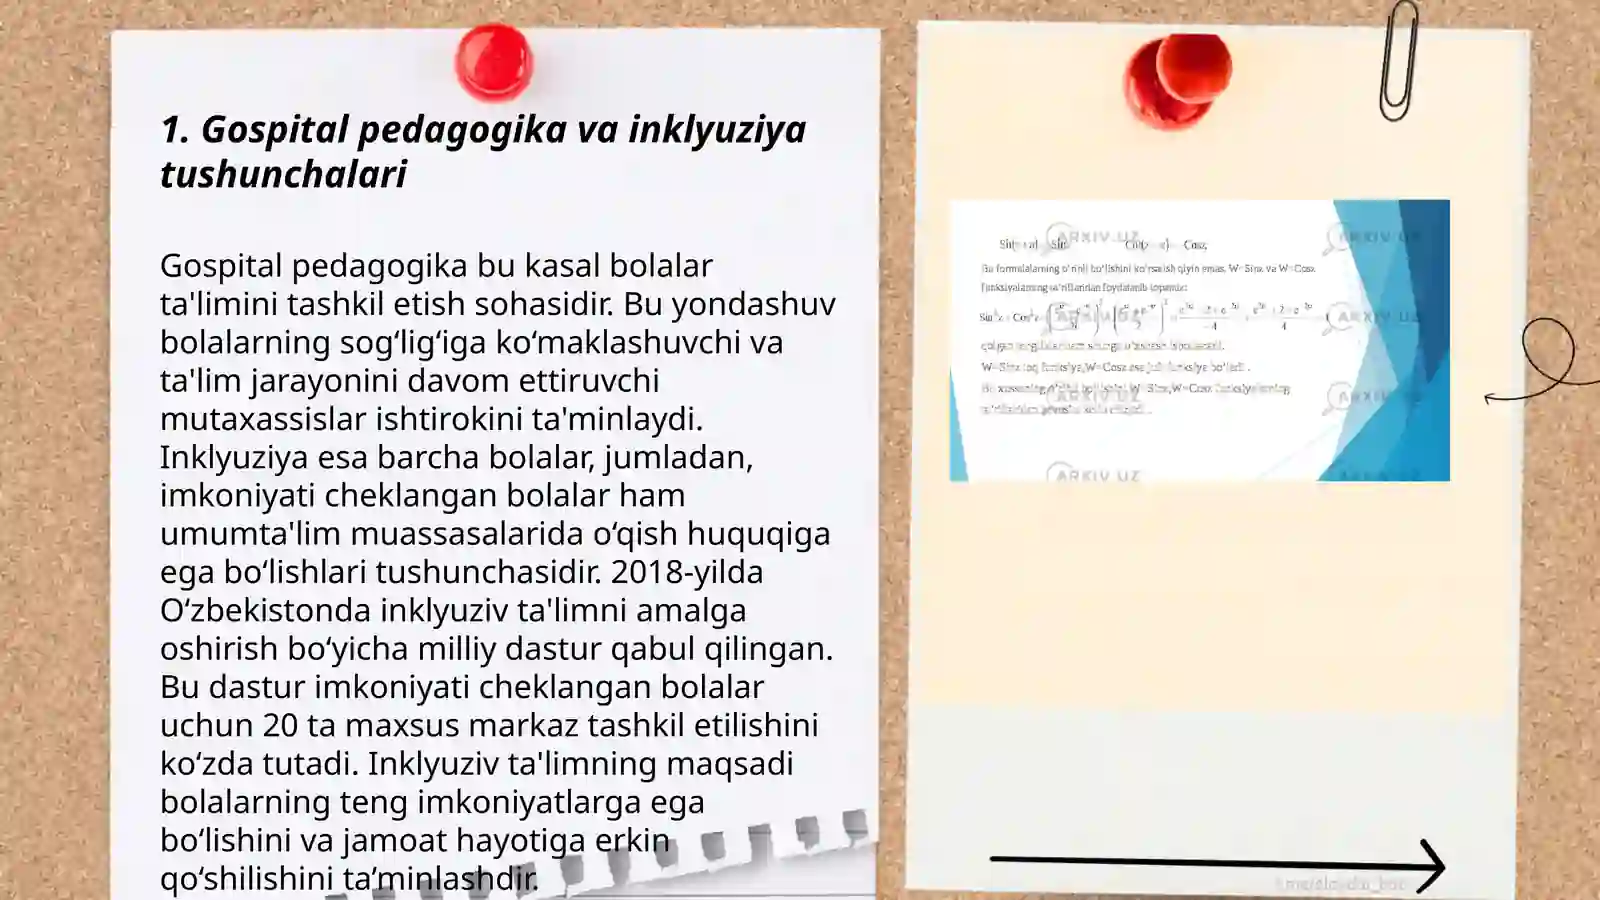 1. Gospital pedagogika va inklyuziya
tushunchalari
Gospital pedagogika bu kasal bolalar
ta'limini tashkil etish sohasidir. Bu yondashuv
bolalarning sog‘lig‘iga ko‘maklashuvchi va
ta'lim jarayonini davom ettiruvchi
mutaxassislar ishtirokini ta'minlaydi.
Inklyuziya esa barcha bolalar, jumladan,
imkoniyati cheklangan bolalar ham
umumta'lim muassasalarida o‘qish huquqiga
ega bo‘lishlari tushunchasidir. 2018-yilda
O‘zbekistonda inklyuziv ta'limni amalga
oshirish bo‘yicha milliy dastur qabul qilingan.
Bu dastur imkoniyati cheklangan bolalar
uchun 20 ta maxsus markaz tashkil etilishini
ko‘zda tutadi. Inklyuziv ta'limning maqsadi
bolalarning teng imkoniyatlarga ega
bo‘lishini va jamoat hayotiga erkin
qo‘shilishini ta’minlashdir.
ARXIV.UZ
ARXIV.UZ
Bu formulalarning o'rinli bo'lishini ko'rsatish qiyin emas. W=Sinz va W=Cosz
ARXIV.UZ
ARXIV.UZ
ARXIV.UZ
ARXIV.UZ
ARXIV.UZ
ARXIV.UZ